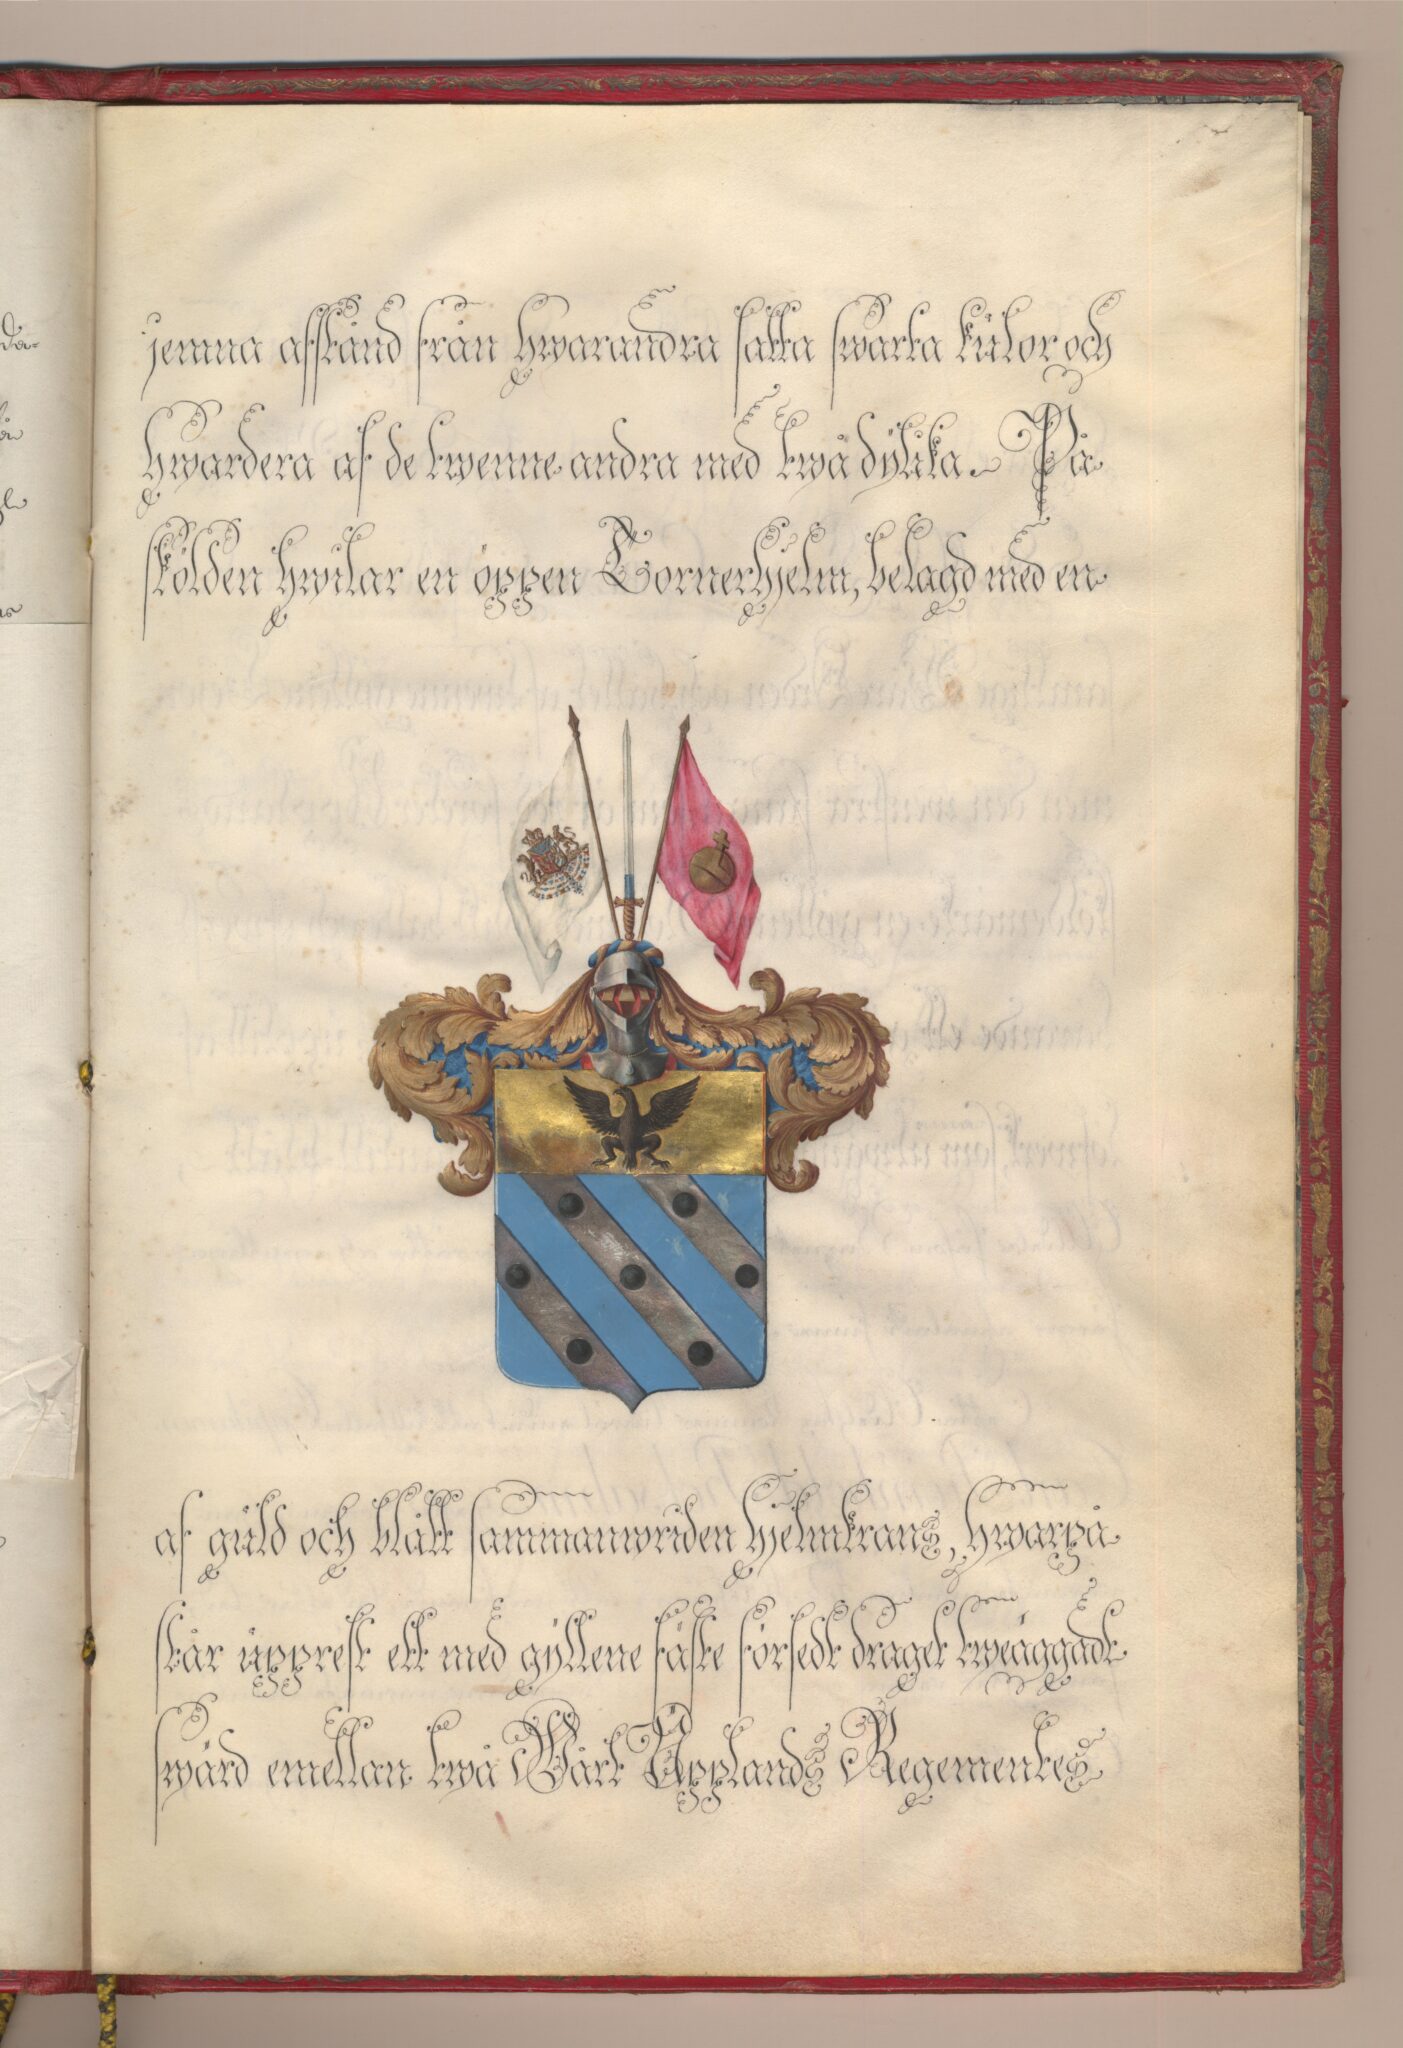 jemna afstånd från hwarandra satta swarta kulor och
hwardera af de twenne andra med twå dylika. På
skölden hwilar en öppen Tornerhjelm, belagd med en
af guld och blått sammanwriden hjelmkrans, hwarpå
står upprest ett med gyllene fäste försedt draget tweäggadt
swärd emellan twå Wårt Upplands Regementes